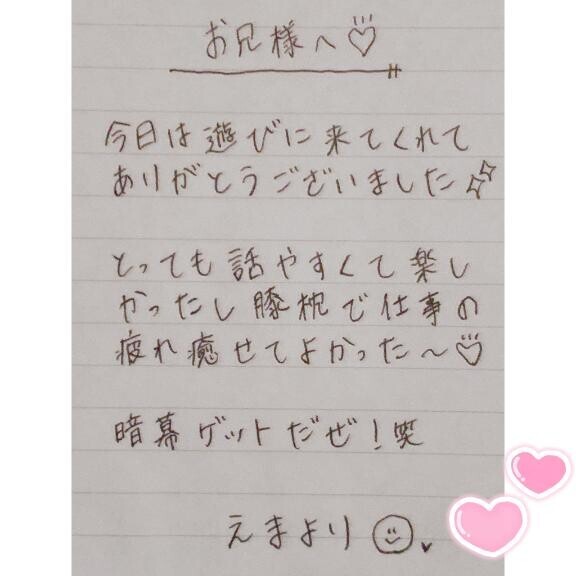 お兄様へ♡
今日は遊びに来てくれて
ありがとうございました✨
とっても話やすくて楽し
かったし膝枕で仕事の
疲れ癒せてよかった〜♡
暗幕ゲットだぜ！笑
えまより☺♥